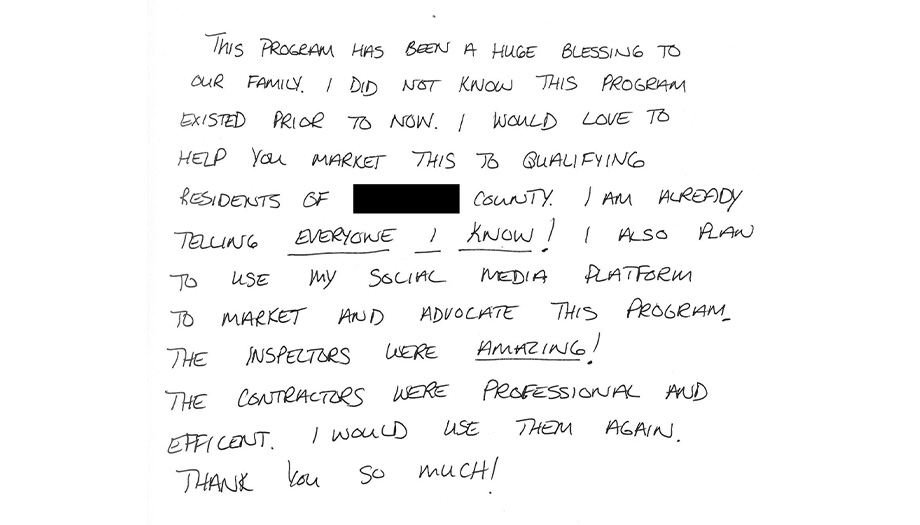 THIS PROGRAM HAS BEEN A HUGE BLESSING TO
OUR FAMILY. I DID NOT KNOW THIS PROGRAM
EXISTED PRIOR TO NOW. I WOULD LOVE TO
HELP YOU MARKET THIS TO QUALIFYING
RESIDENTS OF COUNTY. I AM ALREADY
TELLING EVERYONE I KNOW! I ALSO PLAN
TO USE MY SOCIAL MEDIA PLATFORM
TO MARKET AND ADVOCATE THIS PROGRAM.
THE INSPECTORS WERE AMAZING!
THE CONTRACTORS WERE PROFESSIONAL AND
EFFICENT. I WOULD USE THEM AGAIN.
THANK YOU SO MUCH!